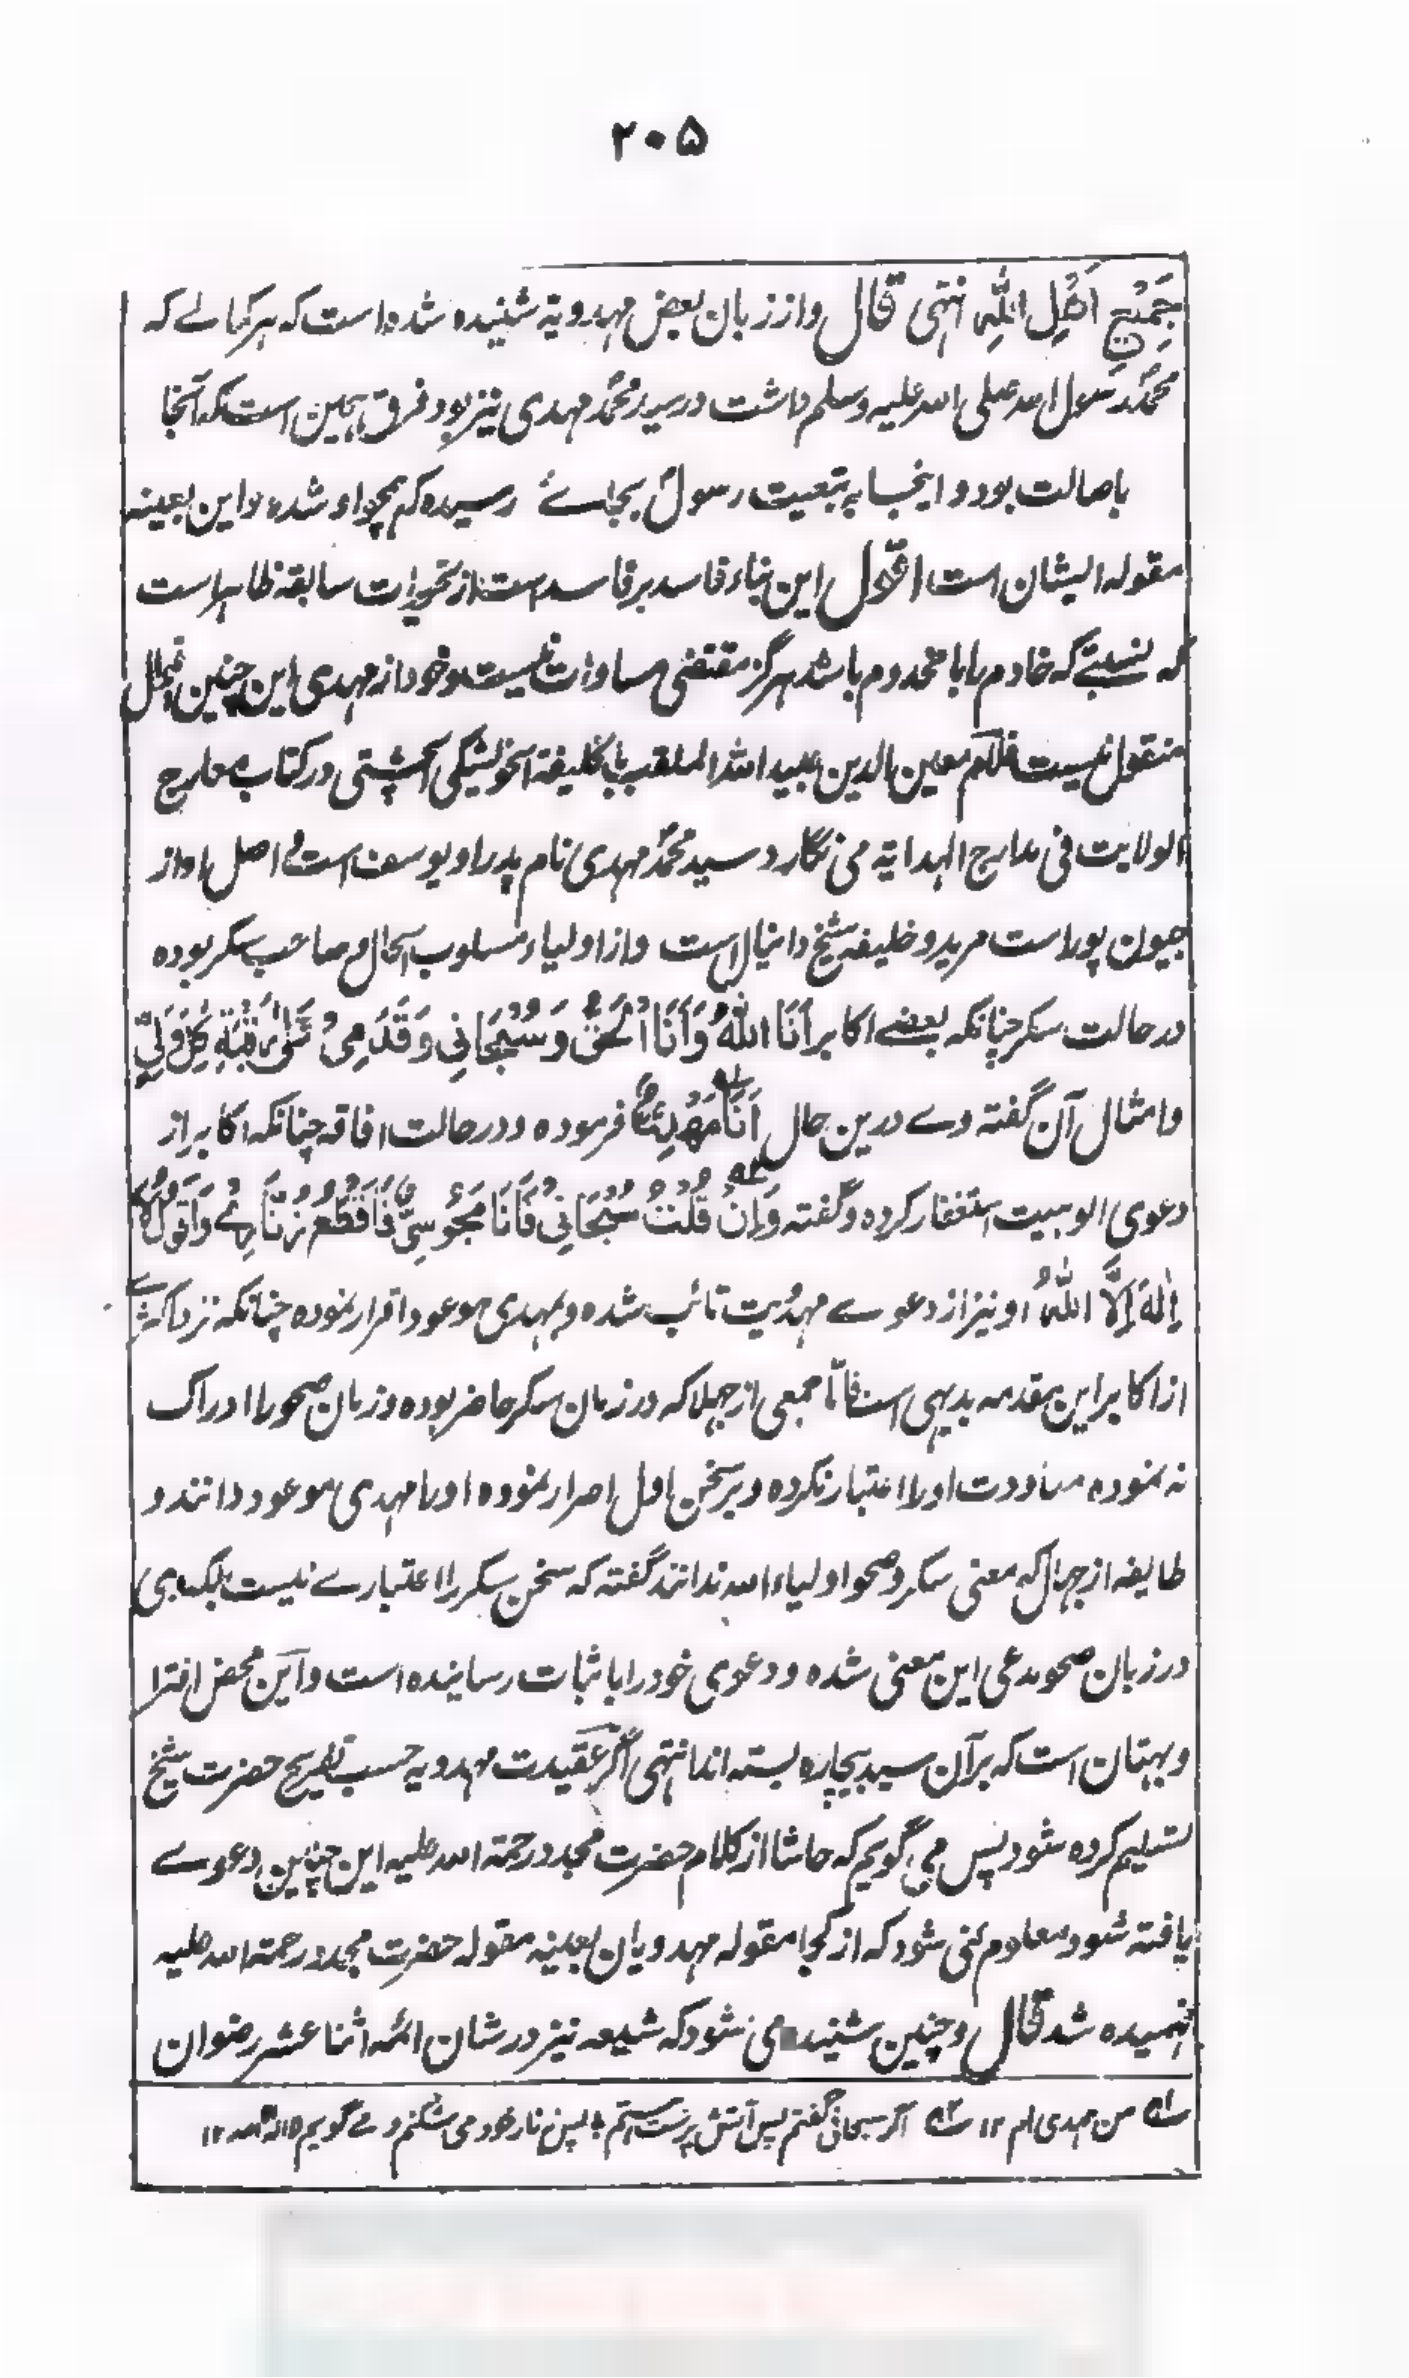 ۲۰۵
جَمِیْعِ اَهْلِ اللّٰهِ انتهی قال و از زبان بعض مهدویة شنیده شده است که هر کمالے که
محمّد رسول الله صلی الله علیه وسلم داشت در سید محمّد مهدی نیز بود فرق همین است که آنجا
باصالت بود و اینجا به تبعیت رسول بجاے رسیده که همچو او شده و این بعینه
مقوله ایشان است اقول این بناء فاسد بر فاسد است از تحریرات سابقه ظاهر است
که نسبتے که خادم را با مخدوم باشد هرگز مقتضی مساوات نیست و خود از مهدی این چنین
منقول نیست غلام معین الدین عبید الله الملقب بالخلیفة الخویشگی الچشتی در کتاب معارج
الولایت فی مدارج الهدایة می نگارد سید محمّد مهدی نام پدر او یوسف است و اصل او از
جیون پور است مرید و خلیفه شیخ دانیال است و از اولیاء مسلوب الحال و صاحب سکر بوده
در حالت سکر چنانکه بعضے اکابر اَنَا اللهُ وَ اَنَا الْحَقُّ وَ سُبْحَانِی وَ قَدَمِیْ عَلٰی رَقَبَةِ کُلِّ وَلِیٍّ
و امثال آن گفته وے درین حال اَنَا مَهْدِیٌّ فرموده و در حالت افاقه چنانکه اکابر از
دعوی الوهیت استغفار کرده و گفته وَ اِنْ قُلْتُ سُبْحَانِیْ فَاَنَا مَجُوْسِیٌّ فَاَقْطَعُ زُنَّارِیْ وَ اَقُوْلُ لَا
اِلٰهَ اِلَّا اللّٰهُ او نیز از دعوے مهدیت تائب شده و بمهدی موعود اقرار نموده چنانکه نزد اکثرے
از اکابر این مقدمه بدیهی است فامّا جمعی از جهلا که در زمان سکر حاضر بوده و زمان صحو را ادراک
نه نموده معاودت او را اعتبار نکرده و بر سخن اول اصرار نموده او را مهدی موعود دانند و
طایفه از جهال که معنی سکر و صحو اولیاء الله ندانند گفته که سخن سکر را اعتبارے نیست بلکه وی
در زبان صحو مدعی این معنی شده و دعوی خود را باثبات رسانیده است و این محض افترا
و بهتان است که بر آن سید بیچاره بسته اند انتهی اگر عقیدت مهدویه حسب تصریح حضرت شیخ
تسلیم کرده شود پس می گویم که حاشا از کلام حضرت مجدد رحمة الله علیه این چنین دعوے
یافته شود معلوم نمی شود که از کجا مقوله مهدویان بعینه مقوله حضرت مجدد رحمة الله علیه
فهمیده شد قال و چنین شنیده می شود که شیعه نیز در شان ائمه اثنا عشر رضوان
۱ من مهدی ام ۱۲ ۲ اگر سبحانی گفتم پس آتش پرست هستم پس زنار خود می شکنم و مے گویم لا اله الا الله ۱۲